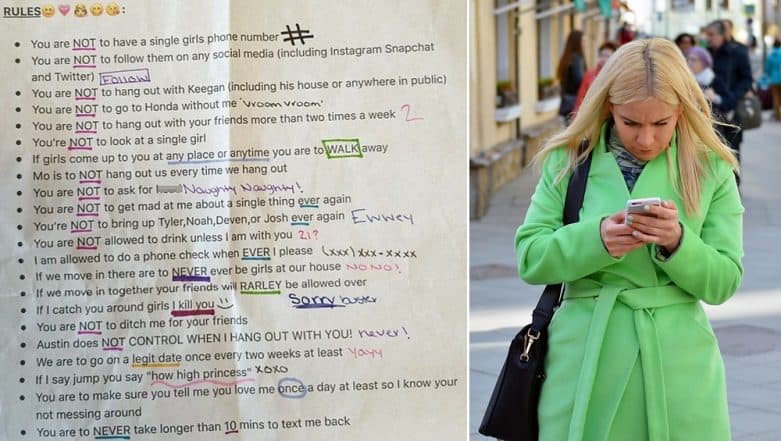 RULES😊💗👸😋😘:
You are NOT to have a single girls phone number #
You are NOT to follow them on any social media (including Instagram Snapchat
and Twitter) Follow
You are NOT to hang out with Keegan (including his house or anywhere in public)
You are NOT to go to Honda without me 'vroom vroom'
You are NOT to hang out with your friends more than two times a week 2
You're NOT to look at a single girl
If girls come up to you at any place or anytime you are to WALK away
Mo is to NOT hang out us every time we hang out
You are NOT to ask for Naughty Naughty!
You are NOT to get mad at me about a single thing ever again
You're NOT to bring up Tyler,Noah,Deven,or Josh ever again Ewwey
You are NOT allowed to drink unless I am with you 21?
I am allowed to do a phone check when EVER I please (xxx) xxx-xxxx
If we move in there are to NEVER ever be girls at our house NONO!
If we move in together your friends will RARLEY be allowed over
If I catch you around girls I kill you Sorry buster
You are NOT to ditch me for your friends
Austin does NOT CONTROL WHEN I HANG OUT WITH YOU! never!
We are to go on a legit date once every two weeks at least Yayy
If I say jump you say "how high princess" XOXO
You are to make sure you tell me you love me once a day at least so I know your
not messing around
You are to NEVER take longer than 10 mins to text me back